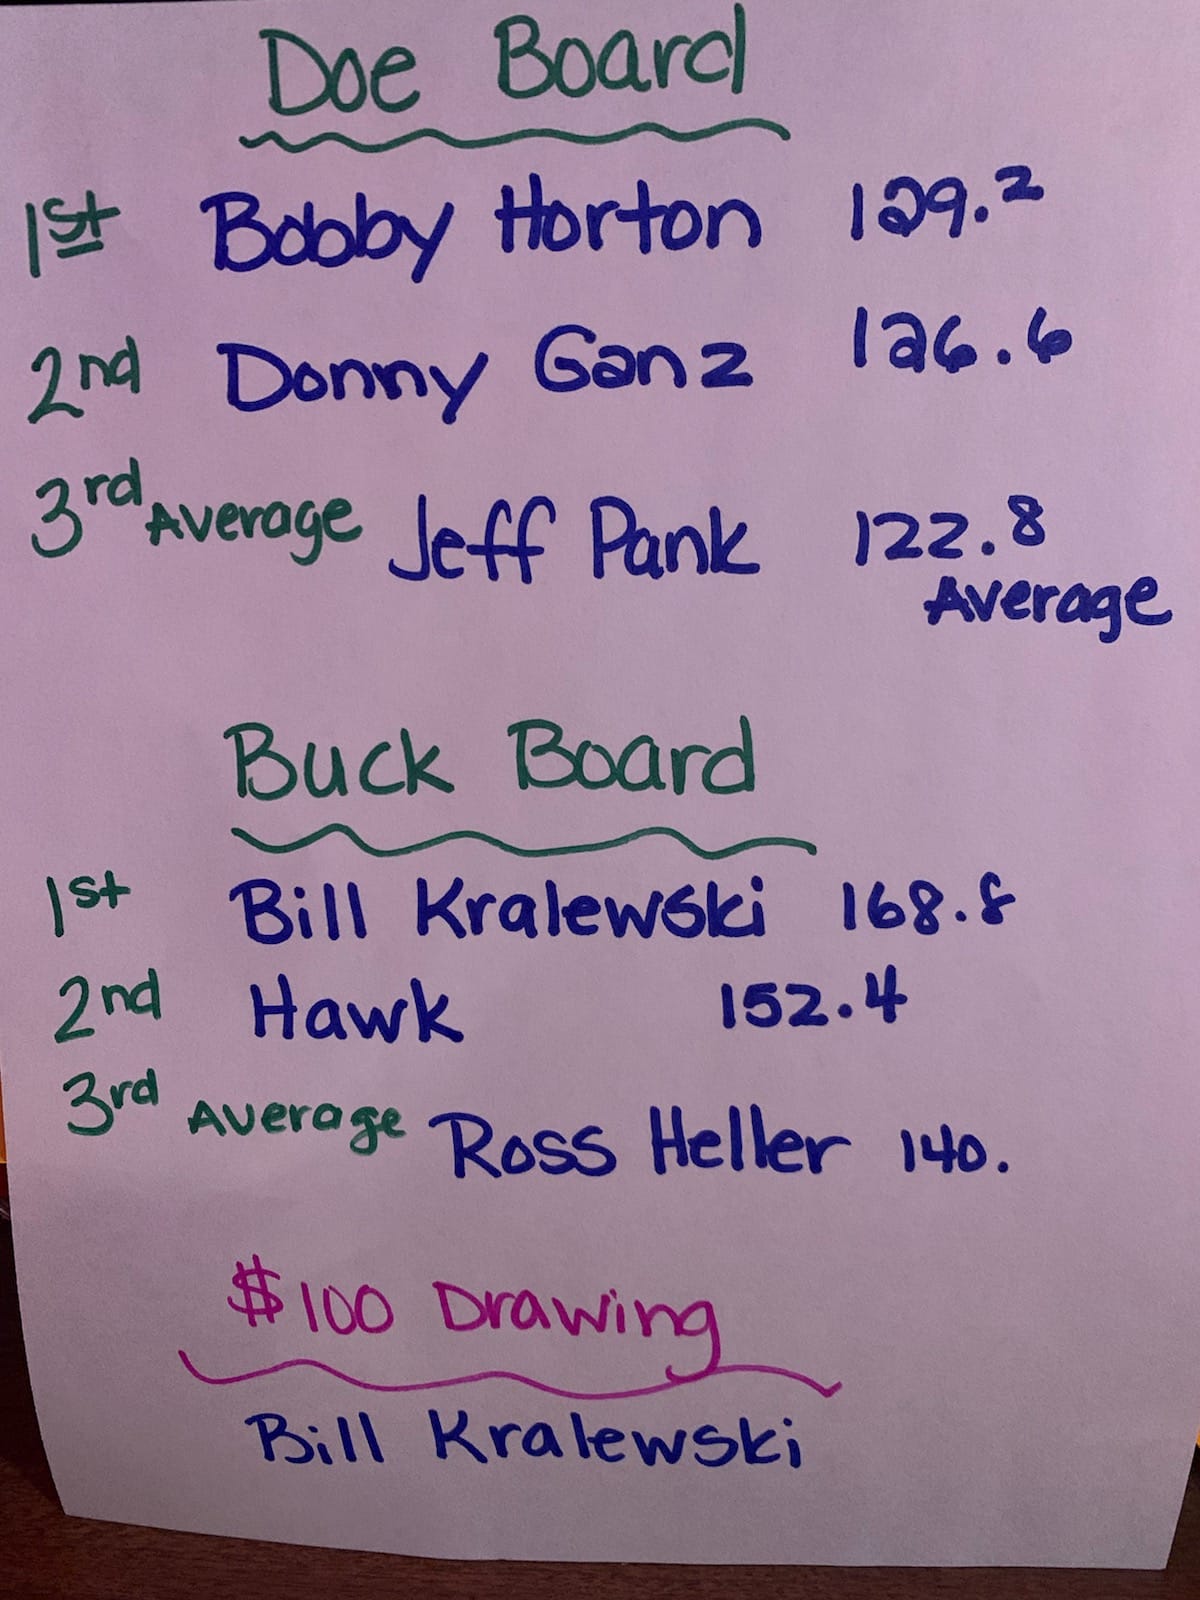 Doe Board
1st Bobby Horton 129.2
2nd Donny Ganz 126.6
3rd Average Jeff Pank 122.8
Average
Buck Board
1st Bill Kralewski 168.8
2nd Hawk 152.4
3rd Average Ross Heller 140.
$100 Drawing
Bill Kralewski